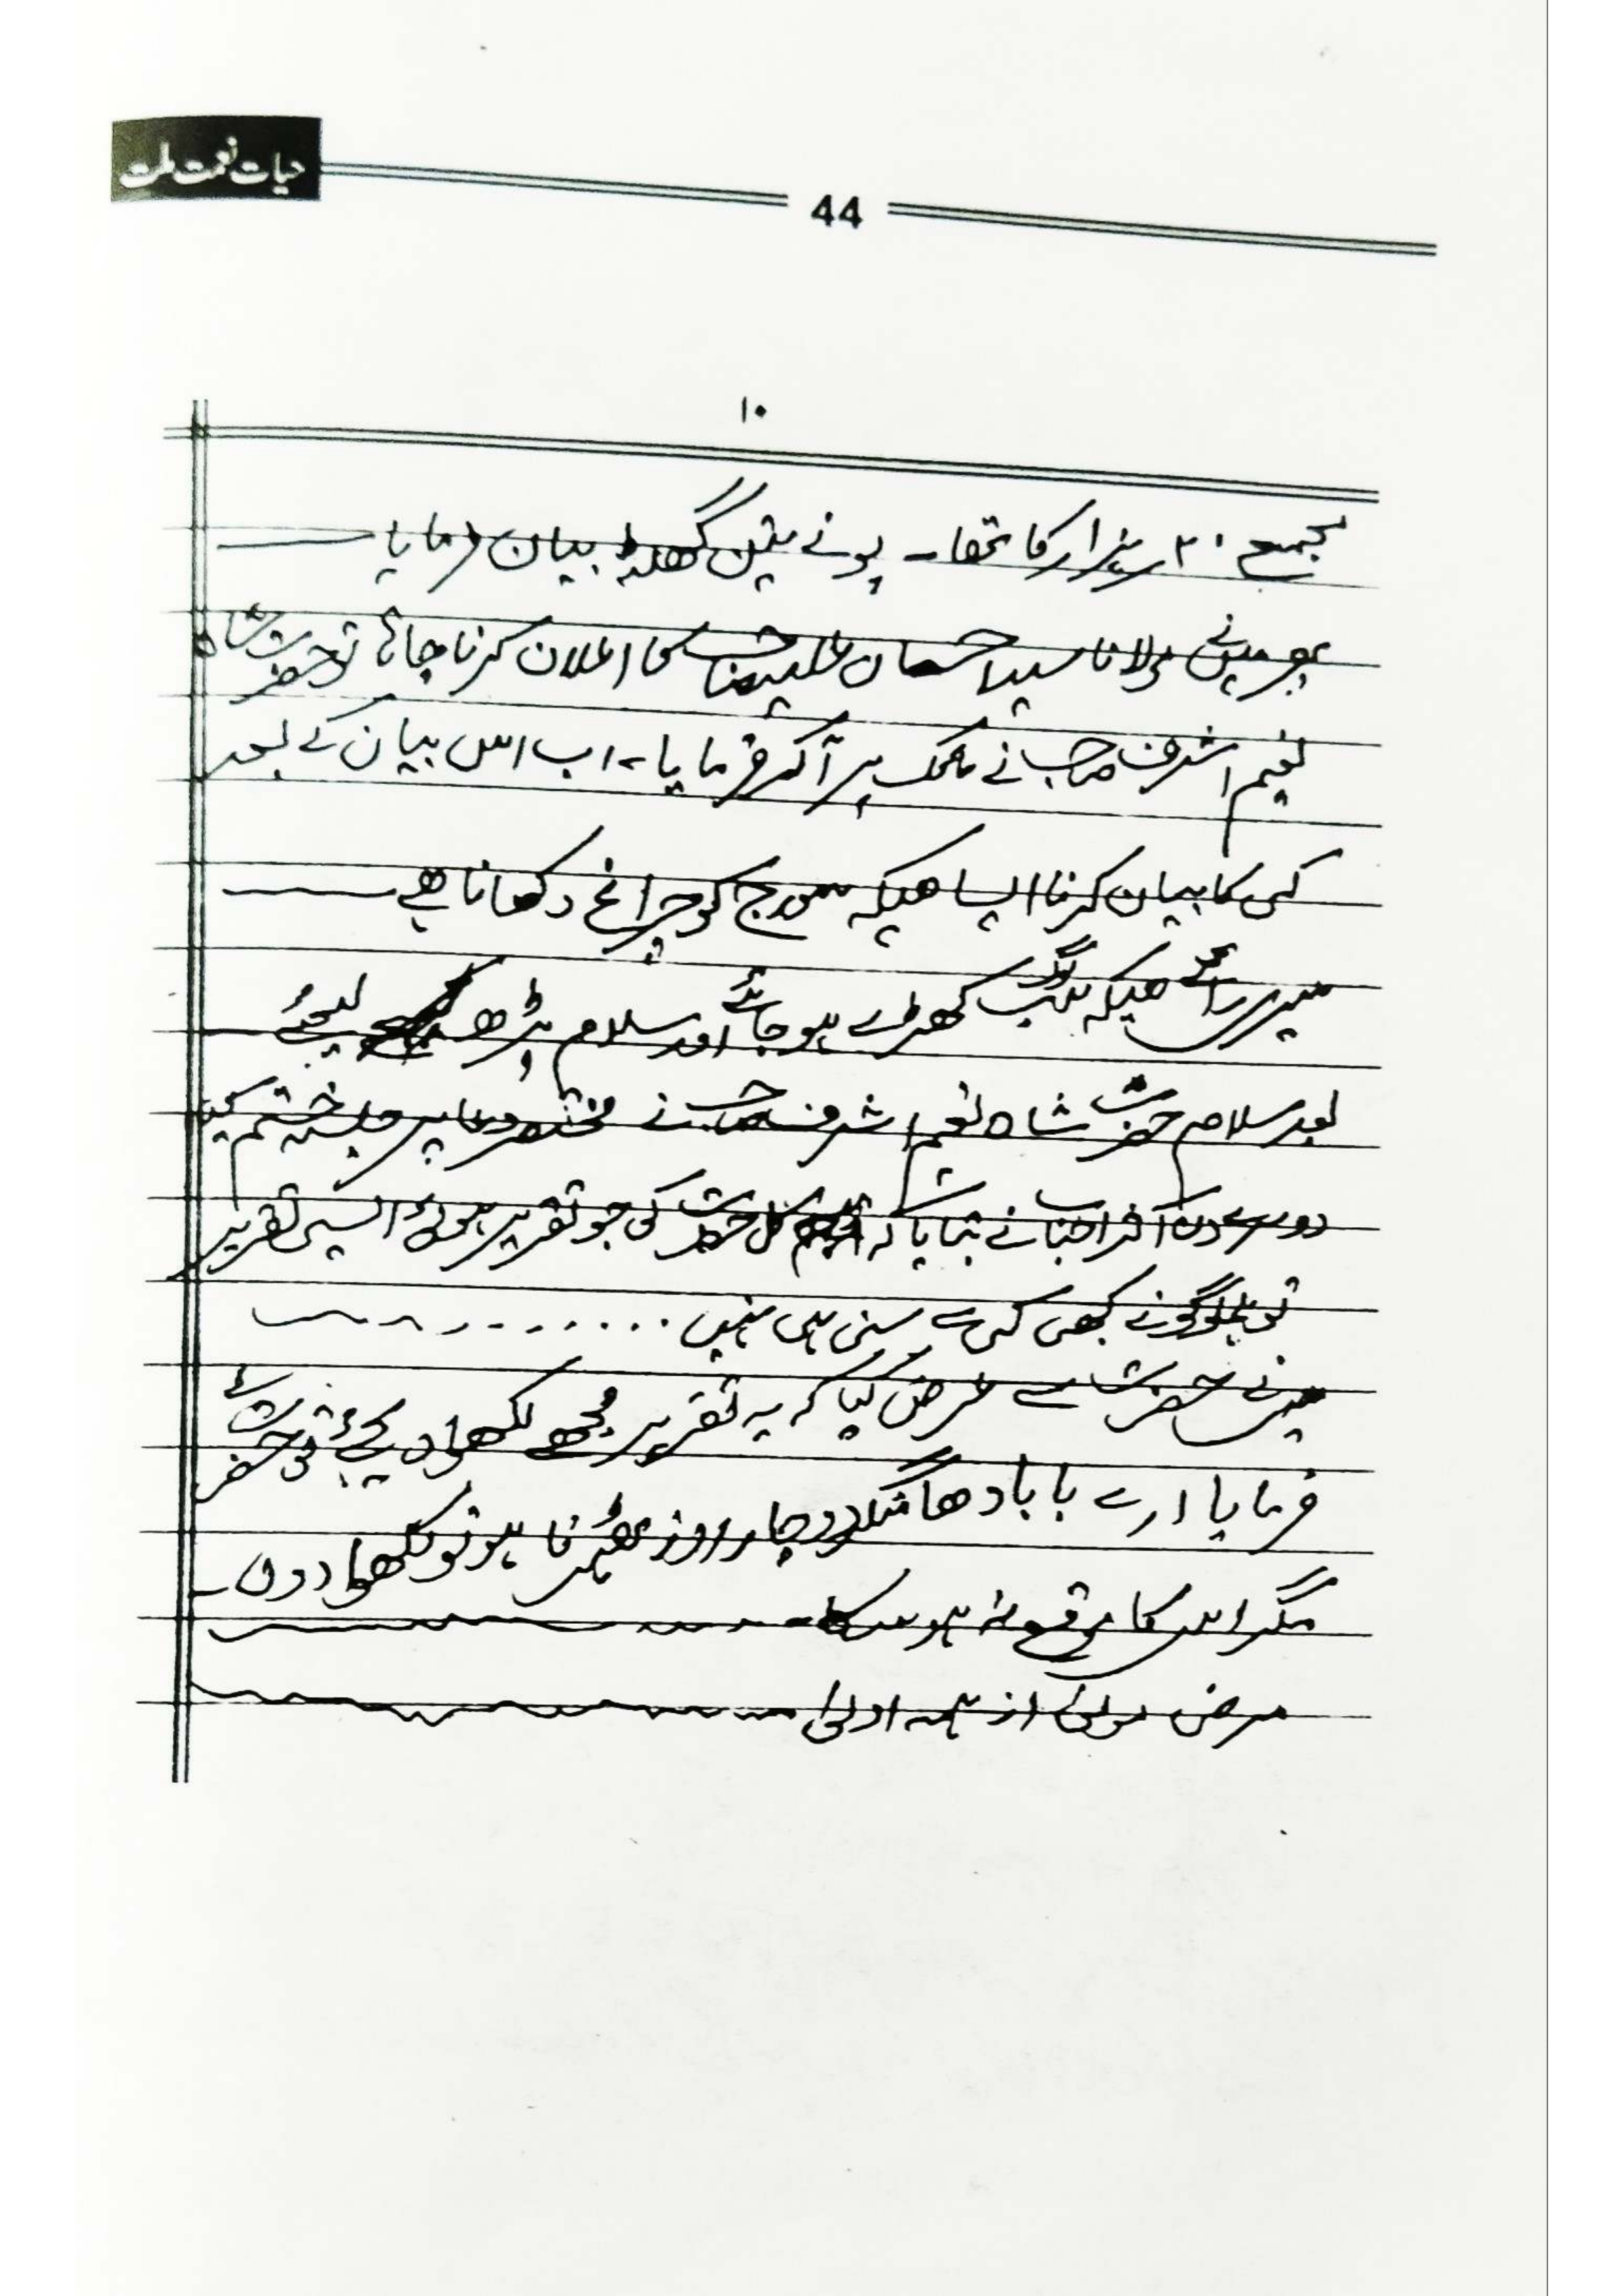 حیات نعمت ملت
44
۱۰
مجمع ۲۰ ہزار کا تھا۔ پونے تین گھنٹہ بیان فرمایا
پھر میں نے مولانا سید احسان علی صاحب کا اعلان کرنا چاہا تو حضرت شاہ
نعیم اشرف صاحب نے مائک پر آکر فرمایا، اب اس بیان کے بعد
کسی کا بیان کرنا ایسا ھیکہ سورج کو چراغ دکھانا ھے
میری رائے ھیکہ لوگ کھڑے ہو جائے اور سلام پڑھ لیجئے
بعد سلام حضرت شاہ نعیم اشرف صاحب نے مختصر دعا پر جلسہ ختم کیا
دوسرے دن اکثر احباب نے بتایا کہ کل حضرت کی جو تقریر ہوئی ایسی تقریر
تو ہملوگو نے کبھی کسی سے سنی ہی نہیں . . . . . . . .
میں نے حضرت سے عرض کیا کہ یہ تقریر مجھے لکھوا دیجئے تو حضرت نے
فرمایا ارے بابا دھامنگر دو چار روز ٹھہرنا ہو تو لکھوا دوں۔
مگر اس کا موقع نہ ہو سکا
مرضی مولیٰ از ہمہ اولیٰ